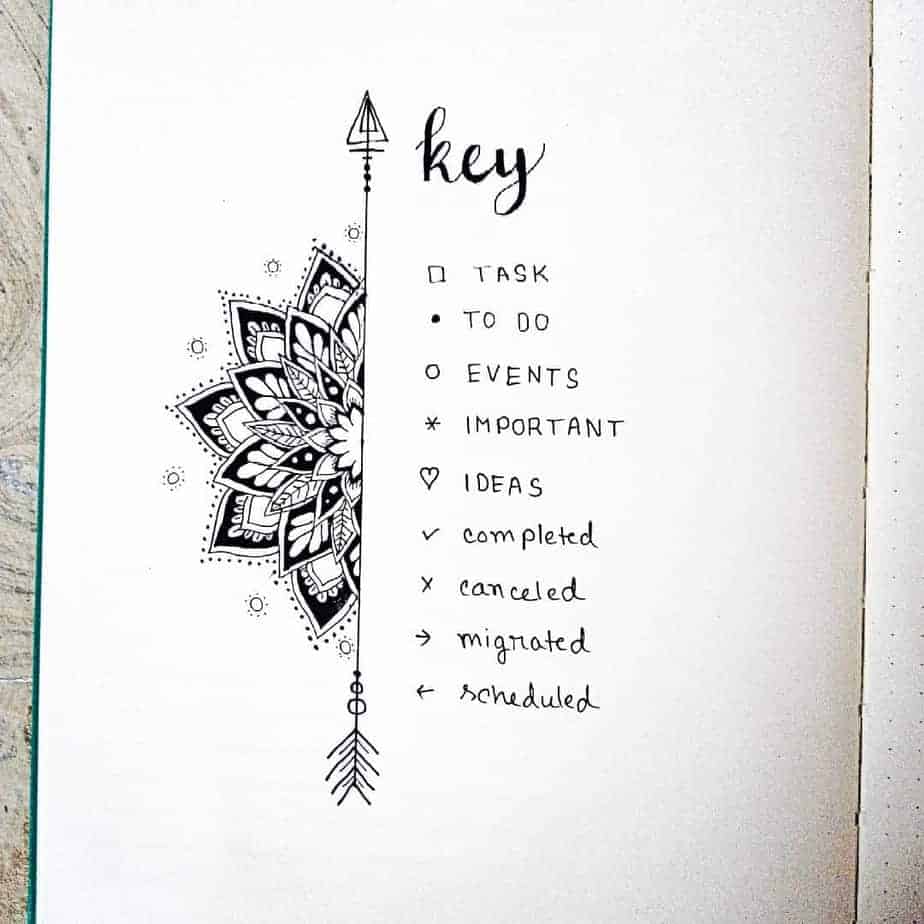 key
□ TASK
• TO DO
○ EVENTS
* IMPORTANT
♡ IDEAS
✓ completed
x canceled
→ migrated
← scheduled